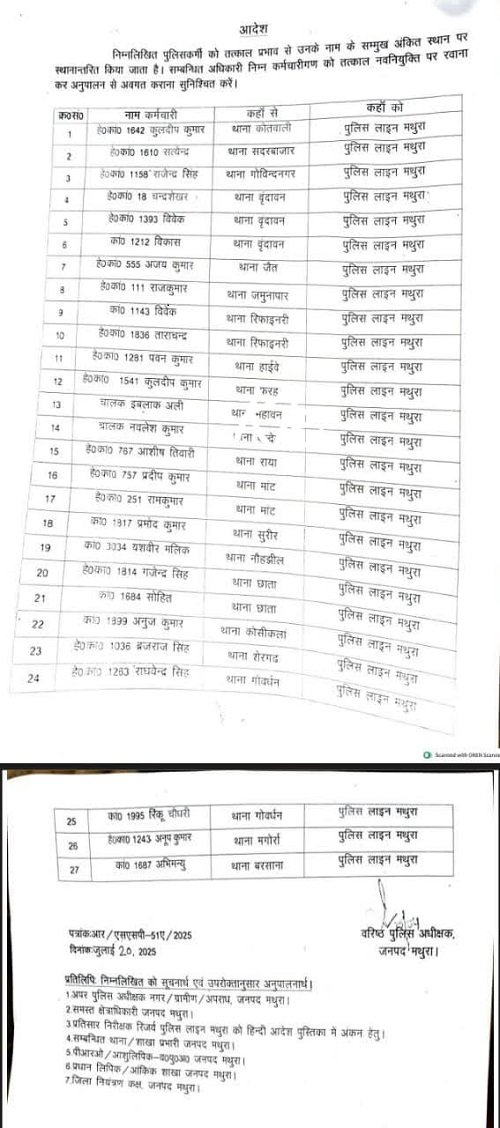 आदेश
निम्नलिखित पुलिसकर्मी को तत्काल प्रभाव से उनके नाम के सम्मुख अंकित स्थान पर
स्थानान्तरित किया जाता है। सम्बन्धित अधिकारी निम्न कर्मचारीगण को तत्काल नवनियुक्ति पर रवाना
कर अनुपालन से अवगत कराना सुनिश्चित करें।
क्र०सं० नाम कर्मचारी कहाँ से कहाँ को
1 हे०कां० 1642 कुलदीप कुमार थाना कोतवाली पुलिस लाइन मथुरा
2 हे०कां० 1610 सत्येन्द्र थाना सदरबाजार पुलिस लाइन मथुरा
3 हे०कां० 1158 राजेन्द्र सिंह थाना गोविन्दनगर पुलिस लाइन मथुरा
4 हे०कां० 18 चन्द्रशेखर थाना वृंदावन पुलिस लाइन मथुरा
5 हे०कां० 1393 विवेक थाना वृंदावन पुलिस लाइन मथुरा
6 कां० 1212 विकास थाना वृंदावन पुलिस लाइन मथुरा
7 हे०कां० 555 अजय कुमार थाना जैंत पुलिस लाइन मथुरा
8 हे०कां० 111 राजकुमार थाना जमुनापार पुलिस लाइन मथुरा
9 कां० 1143 विवेक थाना रिफाइनरी पुलिस लाइन मथुरा
10 हे०कां० 1836 ताराचन्द्र थाना रिफाइनरी पुलिस लाइन मथुरा
11 हे०कां० 1281 पवन कुमार थाना हाईवे पुलिस लाइन मथुरा
12 हे०कां० 1541 कुलदीप कुमार थाना फरह पुलिस लाइन मथुरा
13 चालक इबलाक अली पुलिस लाइन मथुरा
14 चालक नवलेश कुमार पुलिस लाइन मथुरा
15 हे०कां० 767 आशीष तिवारी थाना राया पुलिस लाइन मथुरा
16 हे०कां० 757 प्रदीप कुमार थाना मांट पुलिस लाइन मथुरा
17 हे०कां० 251 रामकुमार थाना मांट पुलिस लाइन मथुरा
18 कां० 1917 प्रमोद कुमार थाना सुरीर पुलिस लाइन मथुरा
19 कां० 3034 यशवीर मलिक थाना नौहझील पुलिस लाइन मथुरा
20 हे०कां० 1814 गजेन्द्र सिंह थाना छाता पुलिस लाइन मथुरा
21 कां० 1684 सोहित थाना छाता पुलिस लाइन मथुरा
22 कां० 1899 अनुज कुमार थाना कोसीकलां पुलिस लाइन मथुरा
23 हे०कां० 1036 ब्रजराज सिंह थाना शेरगढ पुलिस लाइन मथुरा
24 हे०कां० 1263 राघवेन्द्र सिंह थाना गोवर्धन पुलिस लाइन मथुरा
Scanned with OKEN Scanner
25 कां० 1995 रिंकू चौधरी थाना गोवर्धन पुलिस लाइन मथुरा
26 हे०कां० 1243 अनूप कुमार थाना मगोर्रा पुलिस लाइन मथुरा
27 कां० 1687 अभिमन्यु थाना बरसाना पुलिस लाइन मथुरा
पत्रांकःआर/एसएसपी-51ए/2025 वरिष्ठ पुलिस अधीक्षक,
दिनांकःजुलाई 20, 2025 जनपद मथुरा।
प्रतिलिपिः निम्नलिखित को सूचनार्थ एवं उपरोक्तानुसार अनुपालनार्थ।
1.अपर पुलिस अधीक्षक नगर/ग्रामीण/अपराध, जनपद मथुरा।
2.समस्त क्षेत्राधिकारी जनपद मथुरा।
3.प्रतिसार निरीक्षक रिजर्व पुलिस लाइन मथुरा को हिन्दी आदेश पुस्तिका में अंकन हेतु।
4.सम्बन्धित थाना/शाखा प्रभारी जनपद मथुरा।
5.पीआरओ/आशुलिपिक-व०पु०अ० जनपद मथुरा।
6.प्रधान लिपिक/आंकिक शाखा जनपद मथुरा।
7.जिला नियंत्रण कक्ष, जनपद मथुरा।